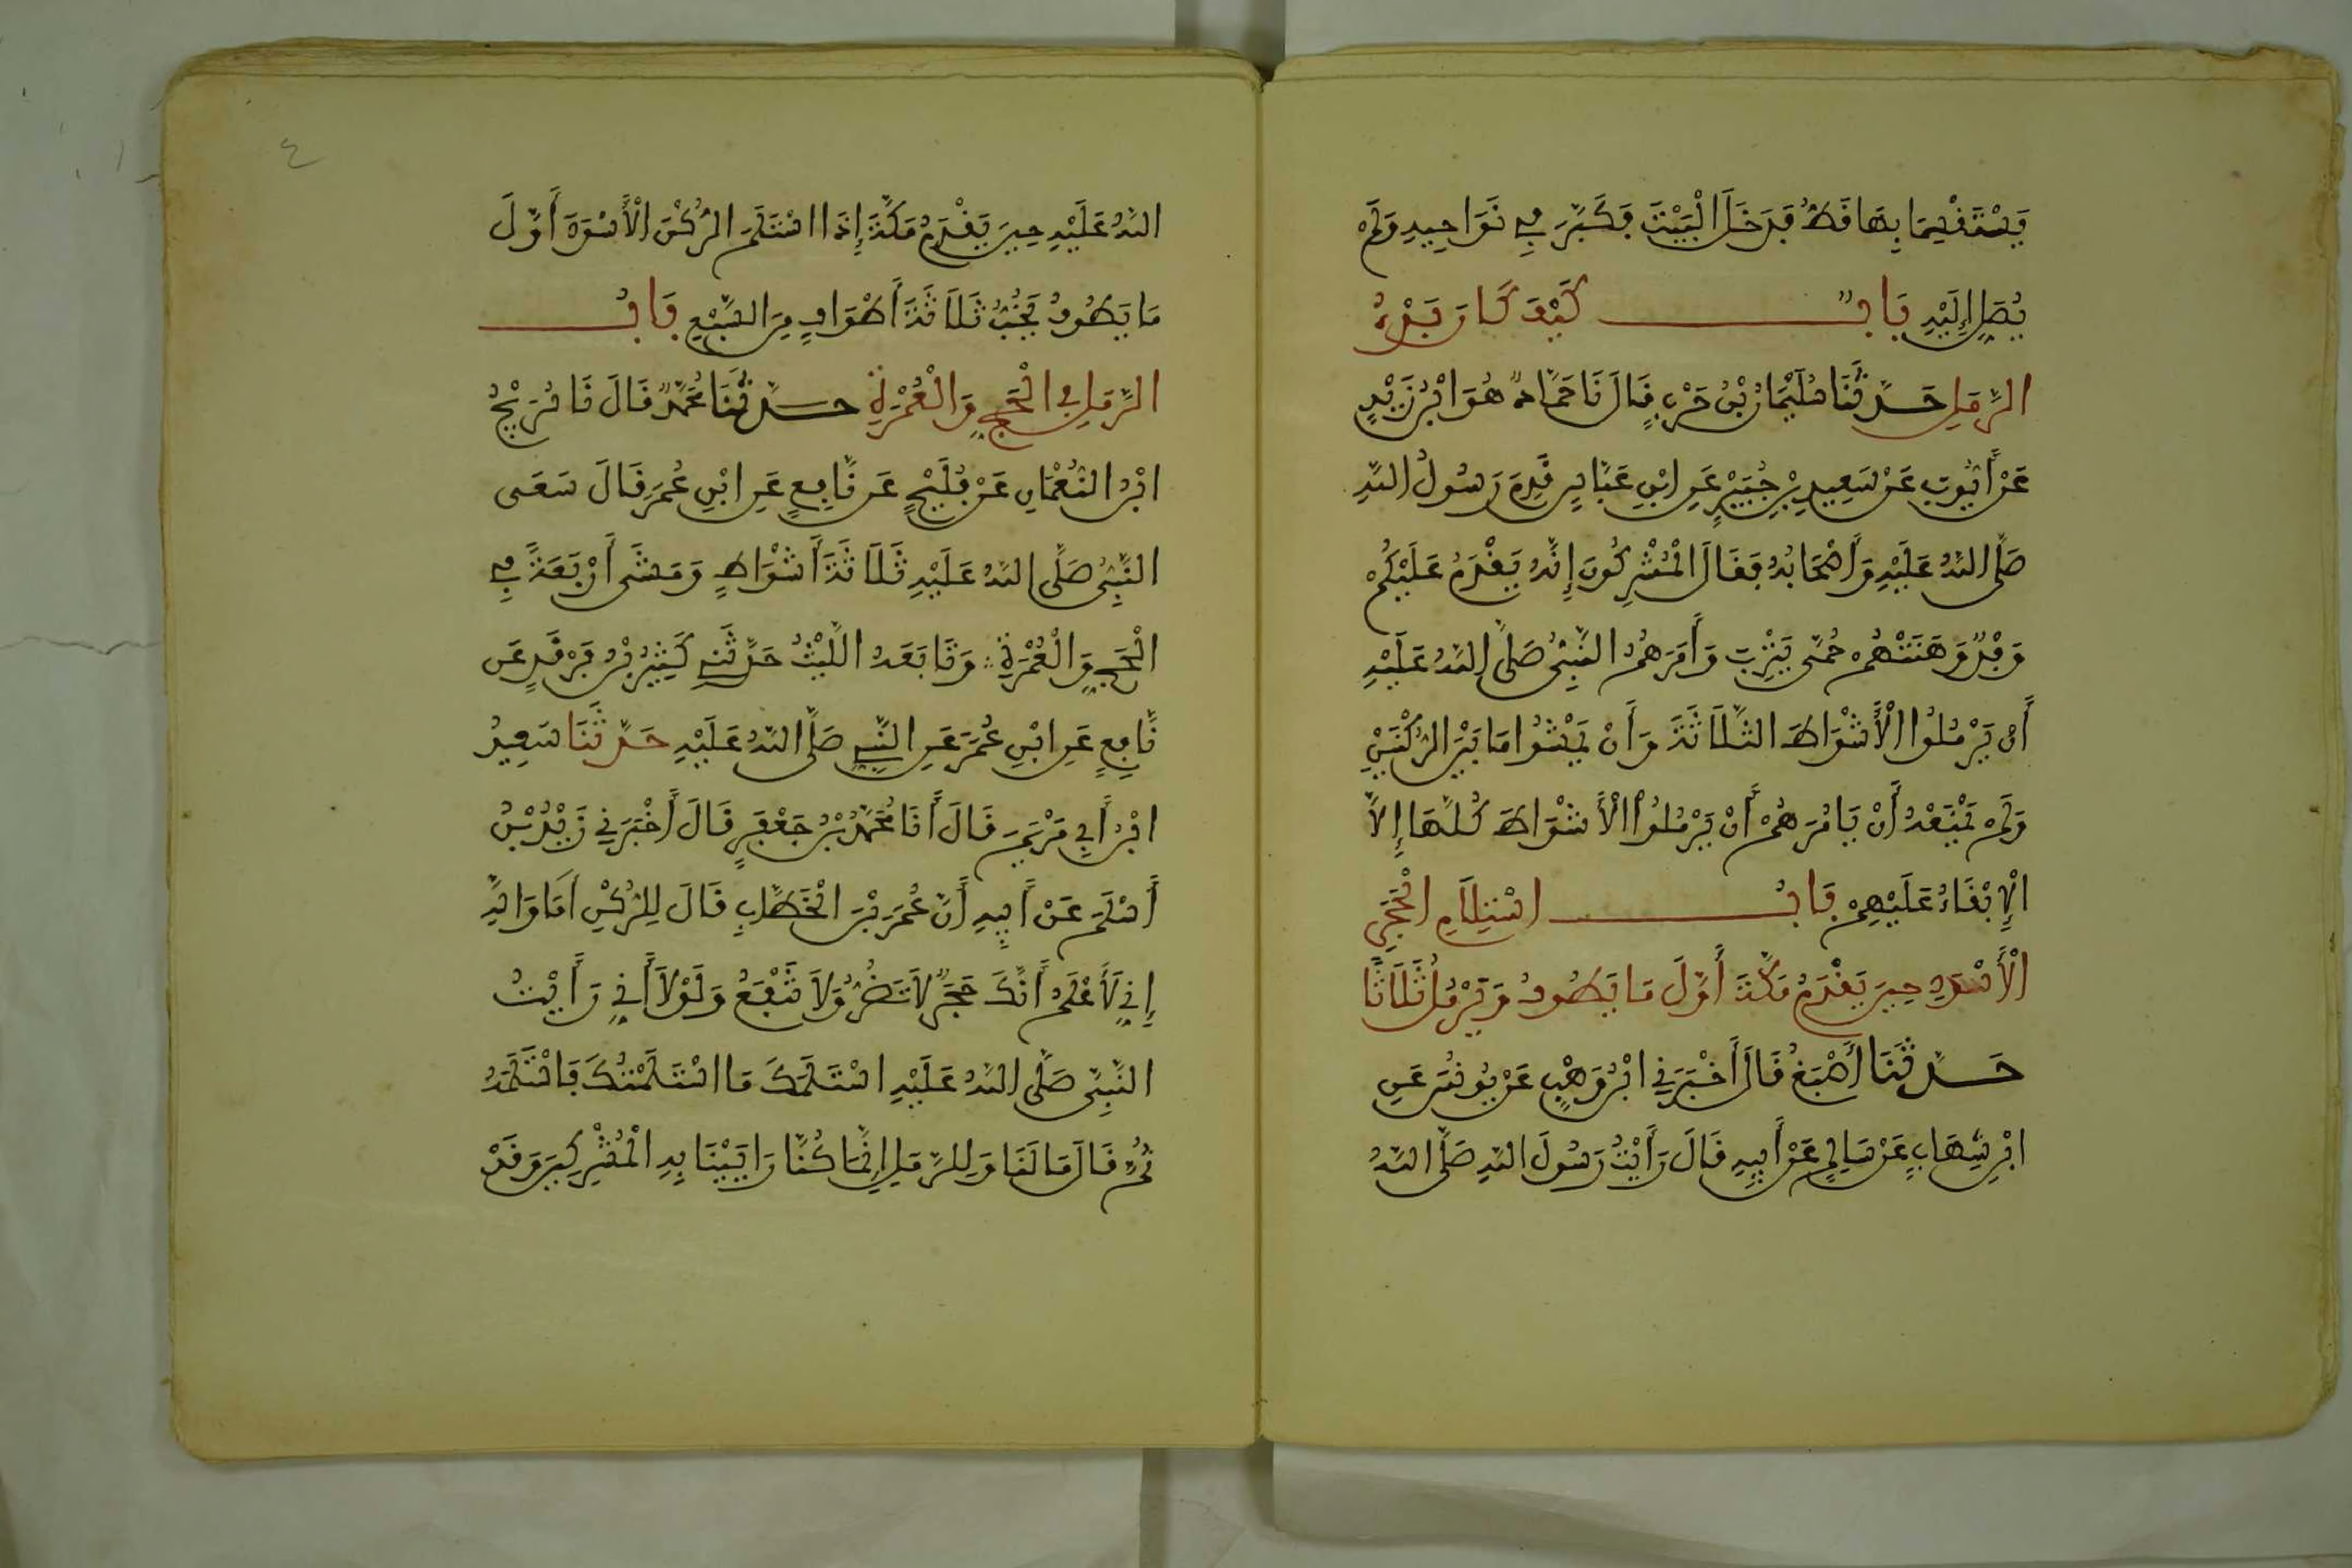 يَسْتَقْسِمَا بِهَا قَطُّ فَدَخَلَ الْبَيْتَ فَكَبَّرَ فِي نَوَاحِيهِ وَلَمْ
يُصَلِّ إِلَيْهِ بَابٌ كَيْفَ كَانَ بَدْءُ
الرَّمَلِ حَدَّثَنَا سُلَيْمَانُ بْنُ حَرْبٍ قَالَ نَا حَمَّادٌ هُوَ ابْنُ زَيْدٍ
عَنْ أَيُّوبَ عَنْ سَعِيدِ بْنِ جُبَيْرٍ عَنِ ابْنِ عَبَّاسٍ قَدِمَ رَسُولُ اللَّهِ
صَلَّى اللَّهُ عَلَيْهِ وَأَصْحَابُهُ فَقَالَ الْمُشْرِكُونَ إِنَّهُ يَقْدَمُ عَلَيْكُمْ
وَفْدٌ وَهَنَتْهُمْ حُمَّى يَثْرِبَ وَأَمَرَهُمُ النَّبِيُّ صَلَّى اللَّهُ عَلَيْهِ
أَنْ يَرْمُلُوا الْأَشْوَاطَ الثَّلَاثَةَ وَأَنْ يَمْشُوا مَا بَيْنَ الرُّكْنَيْنِ
وَلَمْ يَمْنَعْهُ أَنْ يَأْمُرَهُمْ أَنْ يَرْمُلُوا الْأَشْوَاطَ كُلَّهَا إِلَّا
الْإِبْقَاءُ عَلَيْهِمْ بَابُ اسْتِلَامِ الْحَجَرِ
الْأَسْوَدِ حِينَ يَقْدَمُ مَكَّةَ أَوَّلَ مَا يَطُوفُ وَيَرْمُلُ ثَلَاثًا
حَدَّثَنَا أَصْبَغُ قَالَ أَخْبَرَنِي ابْنُ وَهْبٍ عَنْ يُونُسَ عَنِ
ابْنِ شِهَابٍ عَنْ سَالِمٍ عَنْ أَبِيهِ قَالَ رَأَيْتُ رَسُولَ اللَّهِ صَلَّى اللَّهُ
٤
اللَّهُ عَلَيْهِ حِينَ يَقْدَمُ مَكَّةَ إِذَا اسْتَلَمَ الرُّكْنَ الْأَسْوَدَ أَوَّلَ
مَا يَطُوفُ يَخُبُّ ثَلَاثَةَ أَطْوَافٍ مِنَ السَّبْعِ بَابُ
الرَّمَلِ فِي الْحَجِّ وَالْعُمْرَةِ حَدَّثَنَا مُحَمَّدٌ قَالَ نَا سُرَيْجُ
ابْنُ النُّعْمَانِ عَنْ فُلَيْحٍ عَنْ نَافِعٍ عَنِ ابْنِ عُمَرَ قَالَ سَعَى
النَّبِيُّ صَلَّى اللَّهُ عَلَيْهِ ثَلَاثَةَ أَشْوَاطٍ وَمَشَى أَرْبَعَةً فِي
الْحَجِّ وَالْعُمْرَةِ وَتَابَعَهُ اللَّيْثُ حَدَّثَنِي كَثِيرُ بْنُ فَرْقَدٍ عَن
نَّافِعٍ عَنِ ابْنِ عُمَرَ عَنِ النَّبِيِّ صَلَّى اللَّهُ عَلَيْهِ حَدَّثَنَا سَعِيدُ
ابْنُ أَبِي مَرْيَمَ قَالَ أَنَا مُحَمَّدُ بْنُ جَعْفَرٍ قَالَ أَخْبَرَنِي زَيْدُ بْنُ
أَسْلَمَ عَنْ أَبِيهِ أَنَّ عُمَرَ بْنَ الْخَطَّابِ قَالَ لِلرُّكْنِ أَمَا وَاللَّهِ
إِنِّي لَأَعْلَمُ أَنَّكَ حَجَرٌ لَا تَضُرُّ وَلَا تَنْفَعُ وَلَوْلَا أَنِّي رَأَيْتُ
النَّبِيَّ صَلَّى اللَّهُ عَلَيْهِ اسْتَلَمَكَ مَا اسْتَلَمْتُكَ فَاسْتَلَمَهُ
ثُمَّ قَالَ مَا لَنَا وَلِلرَّمَلِ إِنَّمَا كُنَّا رَايَيْنَا بِهِ الْمُشْرِكِينَ وَقَدْ